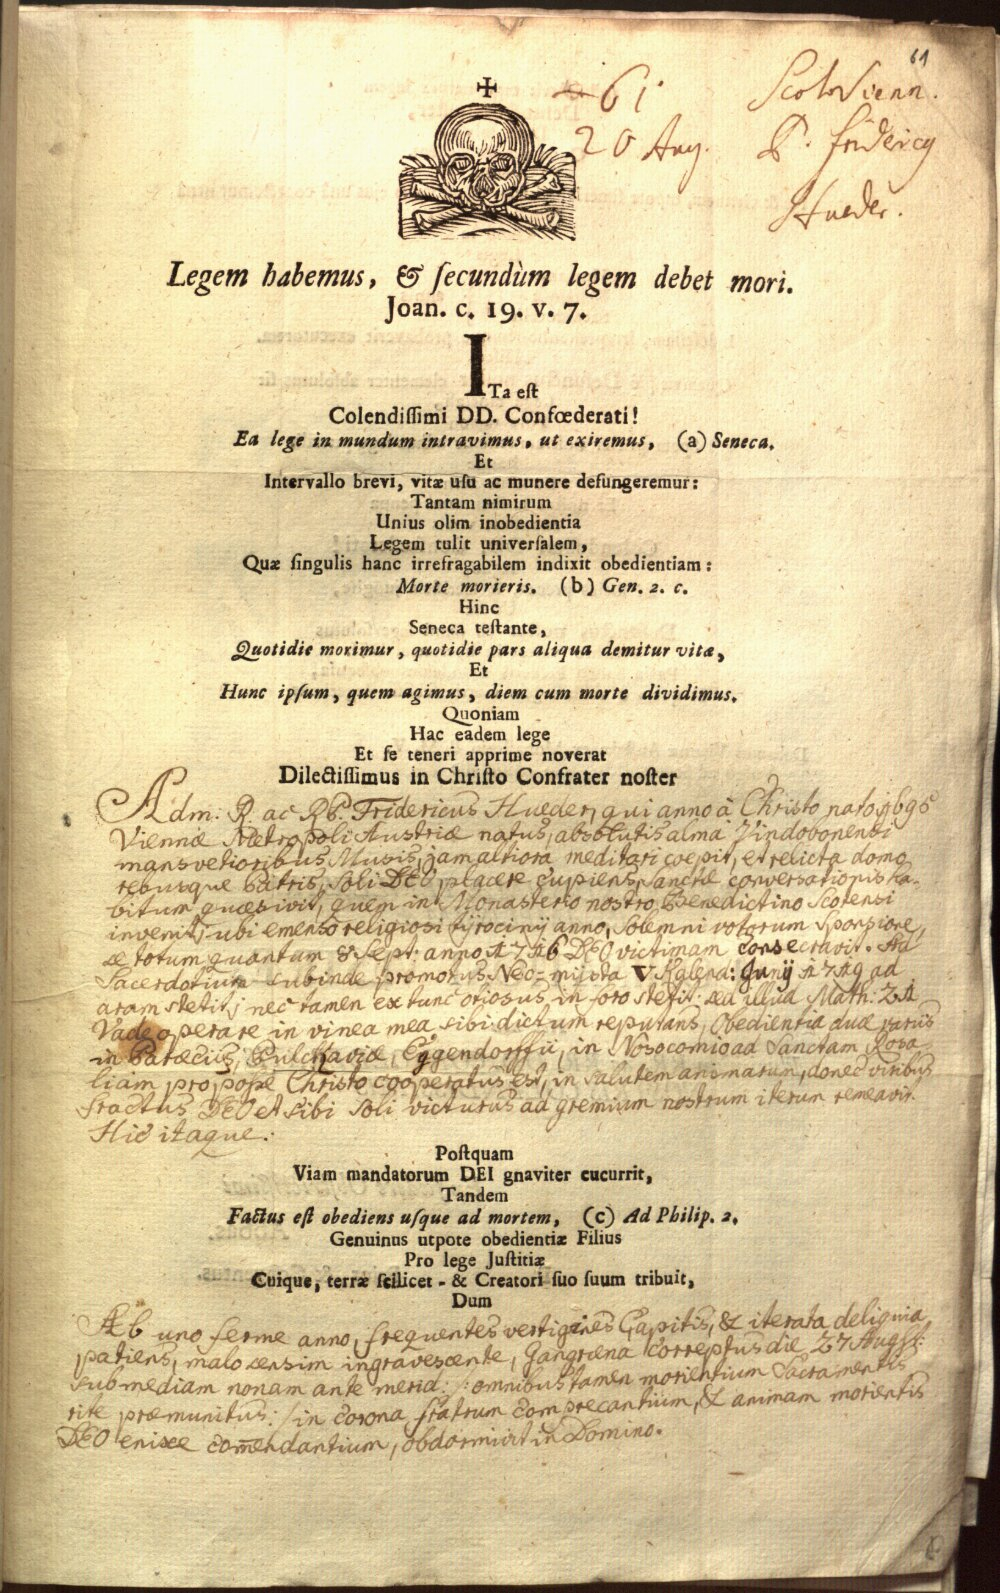 61
61
Scot. Vienn.
20 Aug.
P. Fridericq
Hueder.
Legem habemus, & ſecundùm legem debet mori.
Joan. c. 19. v. 7.
ITa eſt
Colendiſſimi DD. Confœderati!
Ea lege in mundum intravimus, ut exiremus, (a) Seneca.
Et
Intervallo brevi, vitæ uſu ac munere defungeremur:
Tantam nimirum
Unius olim inobedientia
Legem tulit univerſalem,
Quæ ſingulis hanc irrefragabilem indixit obedientiam:
Morte morieris. (b) Gen. 2. c.
Hinc
Seneca teſtante,
Quotidie morimur, quotidie pars aliqua demitur vitæ,
Et
Hunc ipſum, quem agimus, diem cum morte dividimus.
Quoniam
Hac eadem lege
Et ſe teneri apprime noverat
Dilectiſſimus in Chriſto Confrater noſter
Adm: R. ac RP. Fridericus Hueder, qui anno à Christo nato 1696
Viennæ Metropoli Austriæ natus, absolutis alma Vindobonensi
mansvetioribus Musis, jam altiora meditari coepit, et relicta domo
rebusque Patris, soli DEO placere cupiens, sanctæ conversationis ha-
bitum quæsivit, quem in Monasterio nostro Benedictino Scotensi
invenit; ubi emenso religiosi tÿrocinÿ anno, solemni votorum sponsione,
se totum quantum 8 Sept: anno 1716 DEO victimam consecravit. Ad
Sacerdotium subinde promotus Neo-mÿsta V Kalend: Junÿ 1719 ad
aram stetit; nec tamen ex tunc otiosus in foro stetit: sed illud Math: 21
Vade operare in vinea mea sibi dictum reputans, Obedientia duce variis
in Paræciis, Pulckaviæ, Eggendorffii, in Nosocomio ad Sanctam Rosa-
liam prope Christo cooperatus est, in salutem animarum, donec viribus
fractus DEO et sibi soli victurus ad gremium nostrum iterum remeavit.
Hic itaque:
Poſtquam
Viam mandatorum DEI gnaviter cucurrit,
Tandem
Factus eſt obediens uſque ad mortem, (c) Ad Philip. 2.
Genuinus utpote obedientiæ Filius
Pro lege Juſtitiæ
Cuique, terræ ſcilicet - & Creatori ſuo ſuum tribuit,
Dum
Ab uno ferme anno, frequentes vertigines Capitis, & iterata deliquia
patiens, malo sensim ingravescente, Gangræna correptus die 27 Augst:
sub mediam nonam ante merid: /: omnibus tamen morientium Sacramentis
rite præmunitus: / in corona fratrum comprecantium, & animam morientis
DEO enixe com̄endantium, obdormivit in Domino.